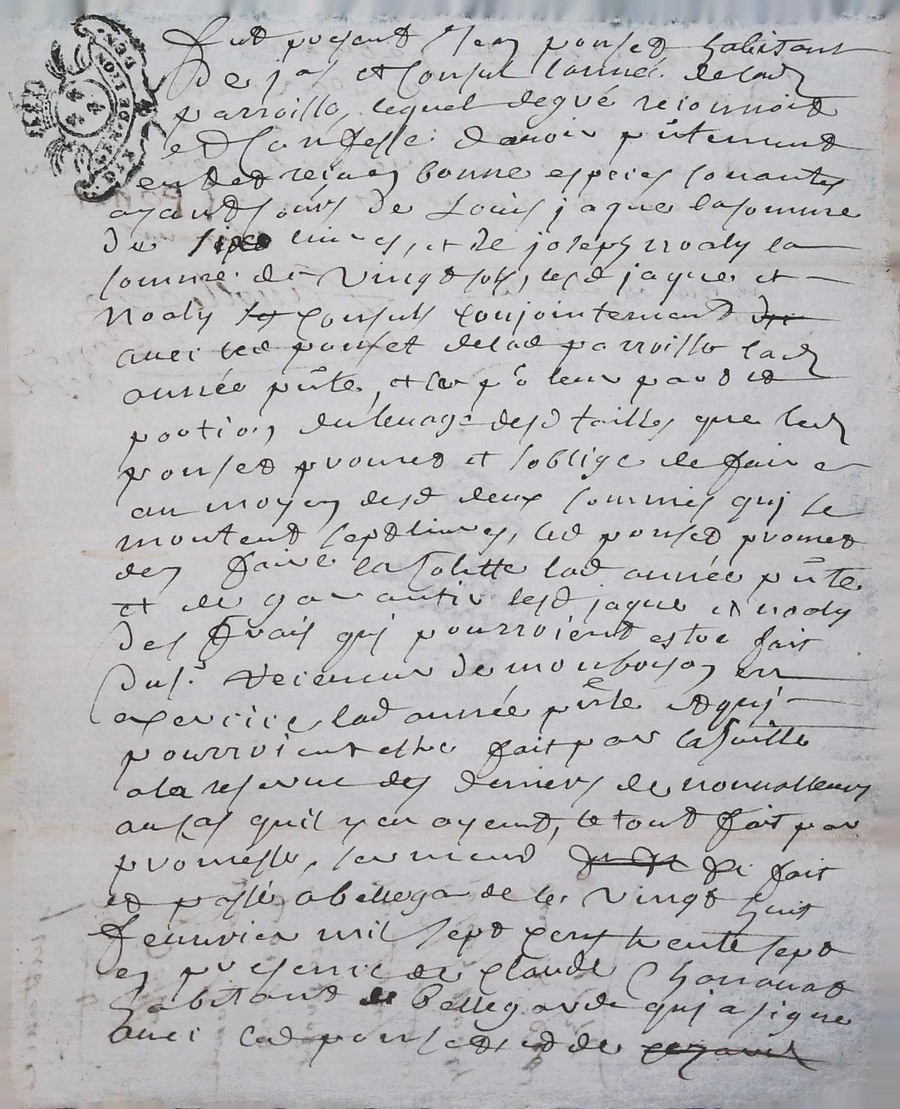 GEN. DE LION
fut present Jean ponset habitant
De jas et Consul lannée delad
parroisse, lequel degré reconnoit
et Confesse davoir pntement
en det receu en bonne especes sonantes
ayand Cours de Louis jaque la somme
de six livres, et de joseph noaly la
somme de vingt sols, lesd jaque et
Noaly Consuls Conjointement
avec led ponset delad parroisse lad
année pnte, et ce pr leur part et
portion du levage desd tailles que led
ponset promet et soblige de faire
au moyen desd deux sommes qui se
montent sept livres, led ponset promet
den faire la Colette lad année pnte
et de garantir lesd jaque et noaly
Des frais qui pourroient estre fait
Du sr receveur de monbrison en
exercice lad année pnte et qui
pourroient estre fait par la suitte
a la reserve des deniers de nonvalleurs
au cas quil y en ayent, le tout fait par
promesse, serment fait
et passé a bellegarde le vingt huit
feuvrier mil sept Cens trente sept
en presence de Claude
habitant de Bellegarde qui a signe
avec led ponset